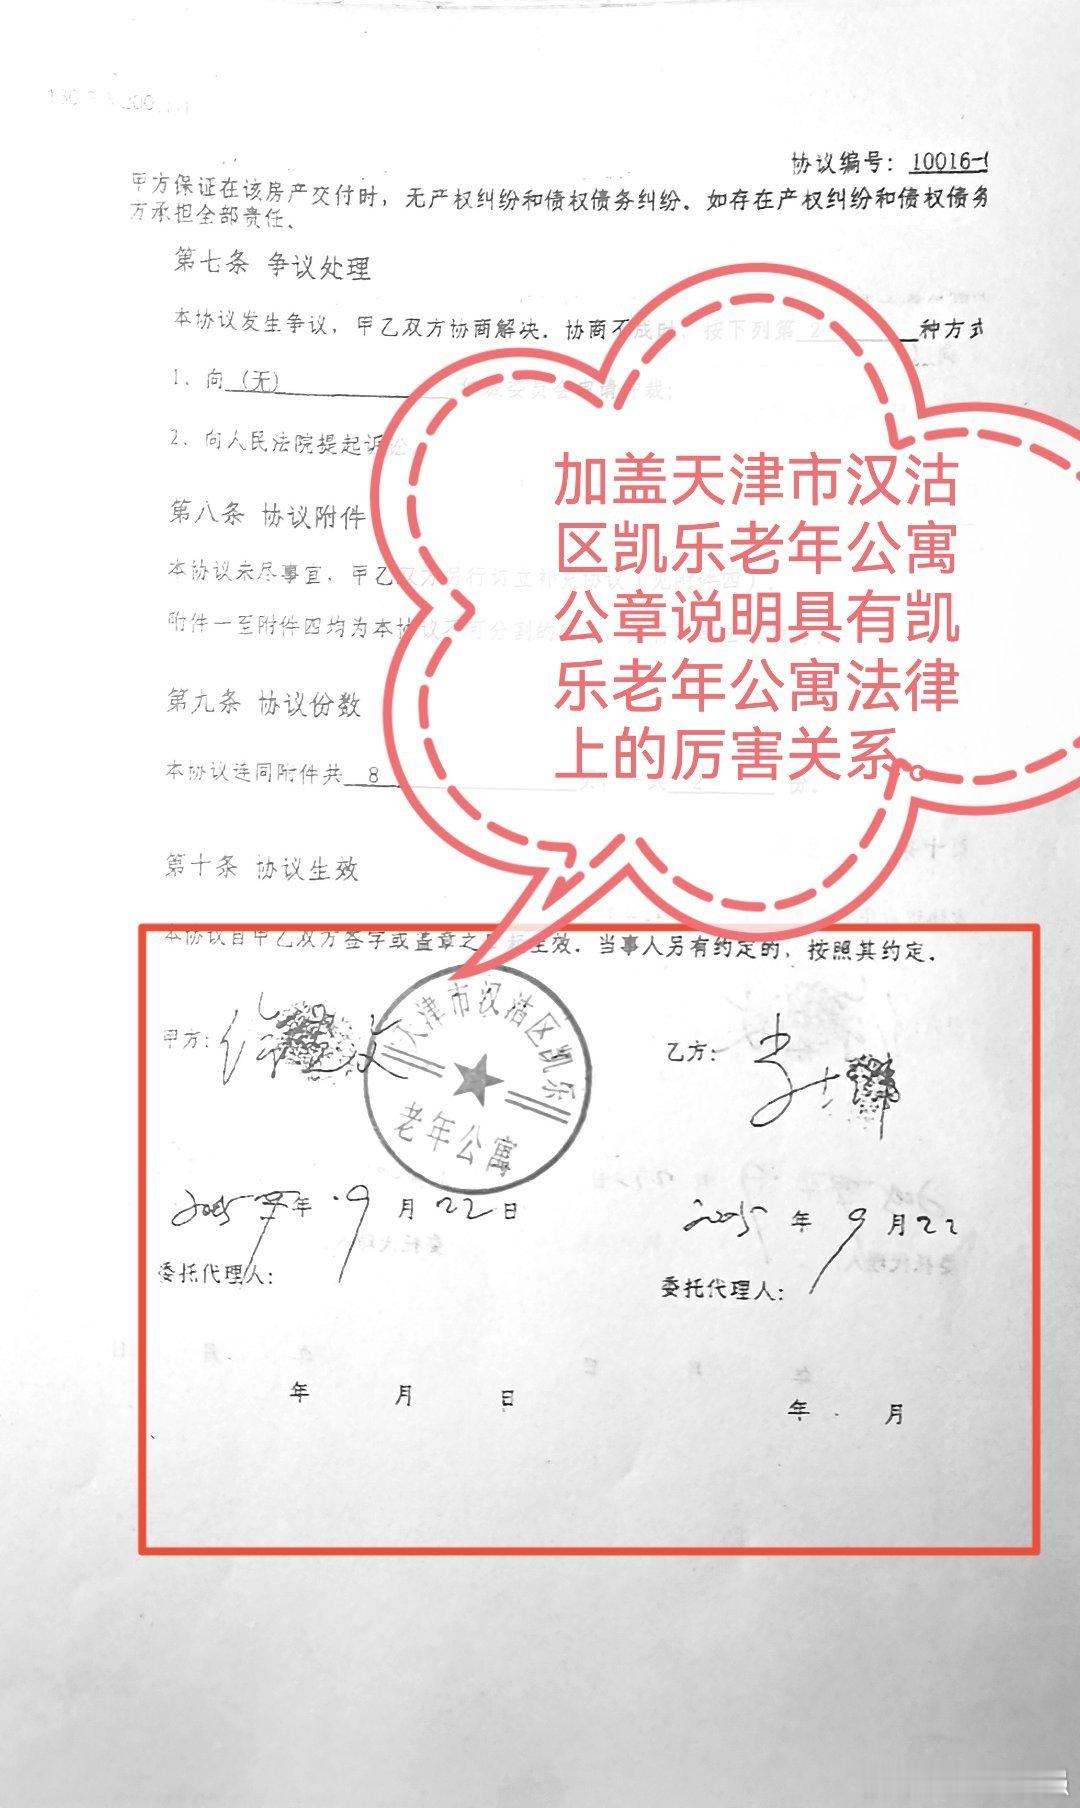 协议编号：10016-
甲方保证在该房产交付时，无产权纠纷和债权债务纠纷。如存在产权纠纷和债权债务
方承担全部责任。
第七条 争议处理
本协议发生争议，甲乙双方协商解决。协商不成时，按下列第 2 种方式
1、向 (无) 委员会申请仲裁；
2、向人民法院提起诉讼
第八条 协议附件
本协议未尽事宜，甲乙双方另行订立补充协议（见附件四）。
附件一至附件四均为本协议不可分割的
第九条 协议份数
本协议连同附件共 8 2 份。
第十条 协议生效
本协议自甲乙双方签字或盖章之日起生效。当事人另有约定的，按照其约定。
加盖天津市汉沽
区凯乐老年公寓
公章说明具有凯
乐老年公寓法律
上的厉害关系。
甲方：
天津市汉沽区凯乐
老年公寓
乙方：
2005年 9月22日
2005年 9月22
委托代理人：
委托代理人：
年 月 日
年 月